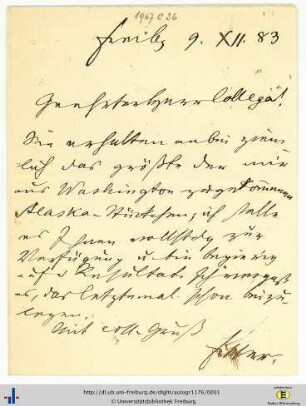 1967 C 26
Freibg 9. XII. 83
Geehrter Herr College!
Sie erhalten anbei ziem-
lich das größte der mir
aus Washington zugekommenen
Alaska-Stückchen, ich stelle
es Ihnen vollstdg zur
Verfügung u. bin begierig
auf d Resultate. Ich vergaß
es, das letztemal schon beizu-
legen.
Mit coll. Gruß
http://dl.ub.uni-freiburg.de/diglit/autogr1176/0001
© Universitätsbibliothek Freiburg